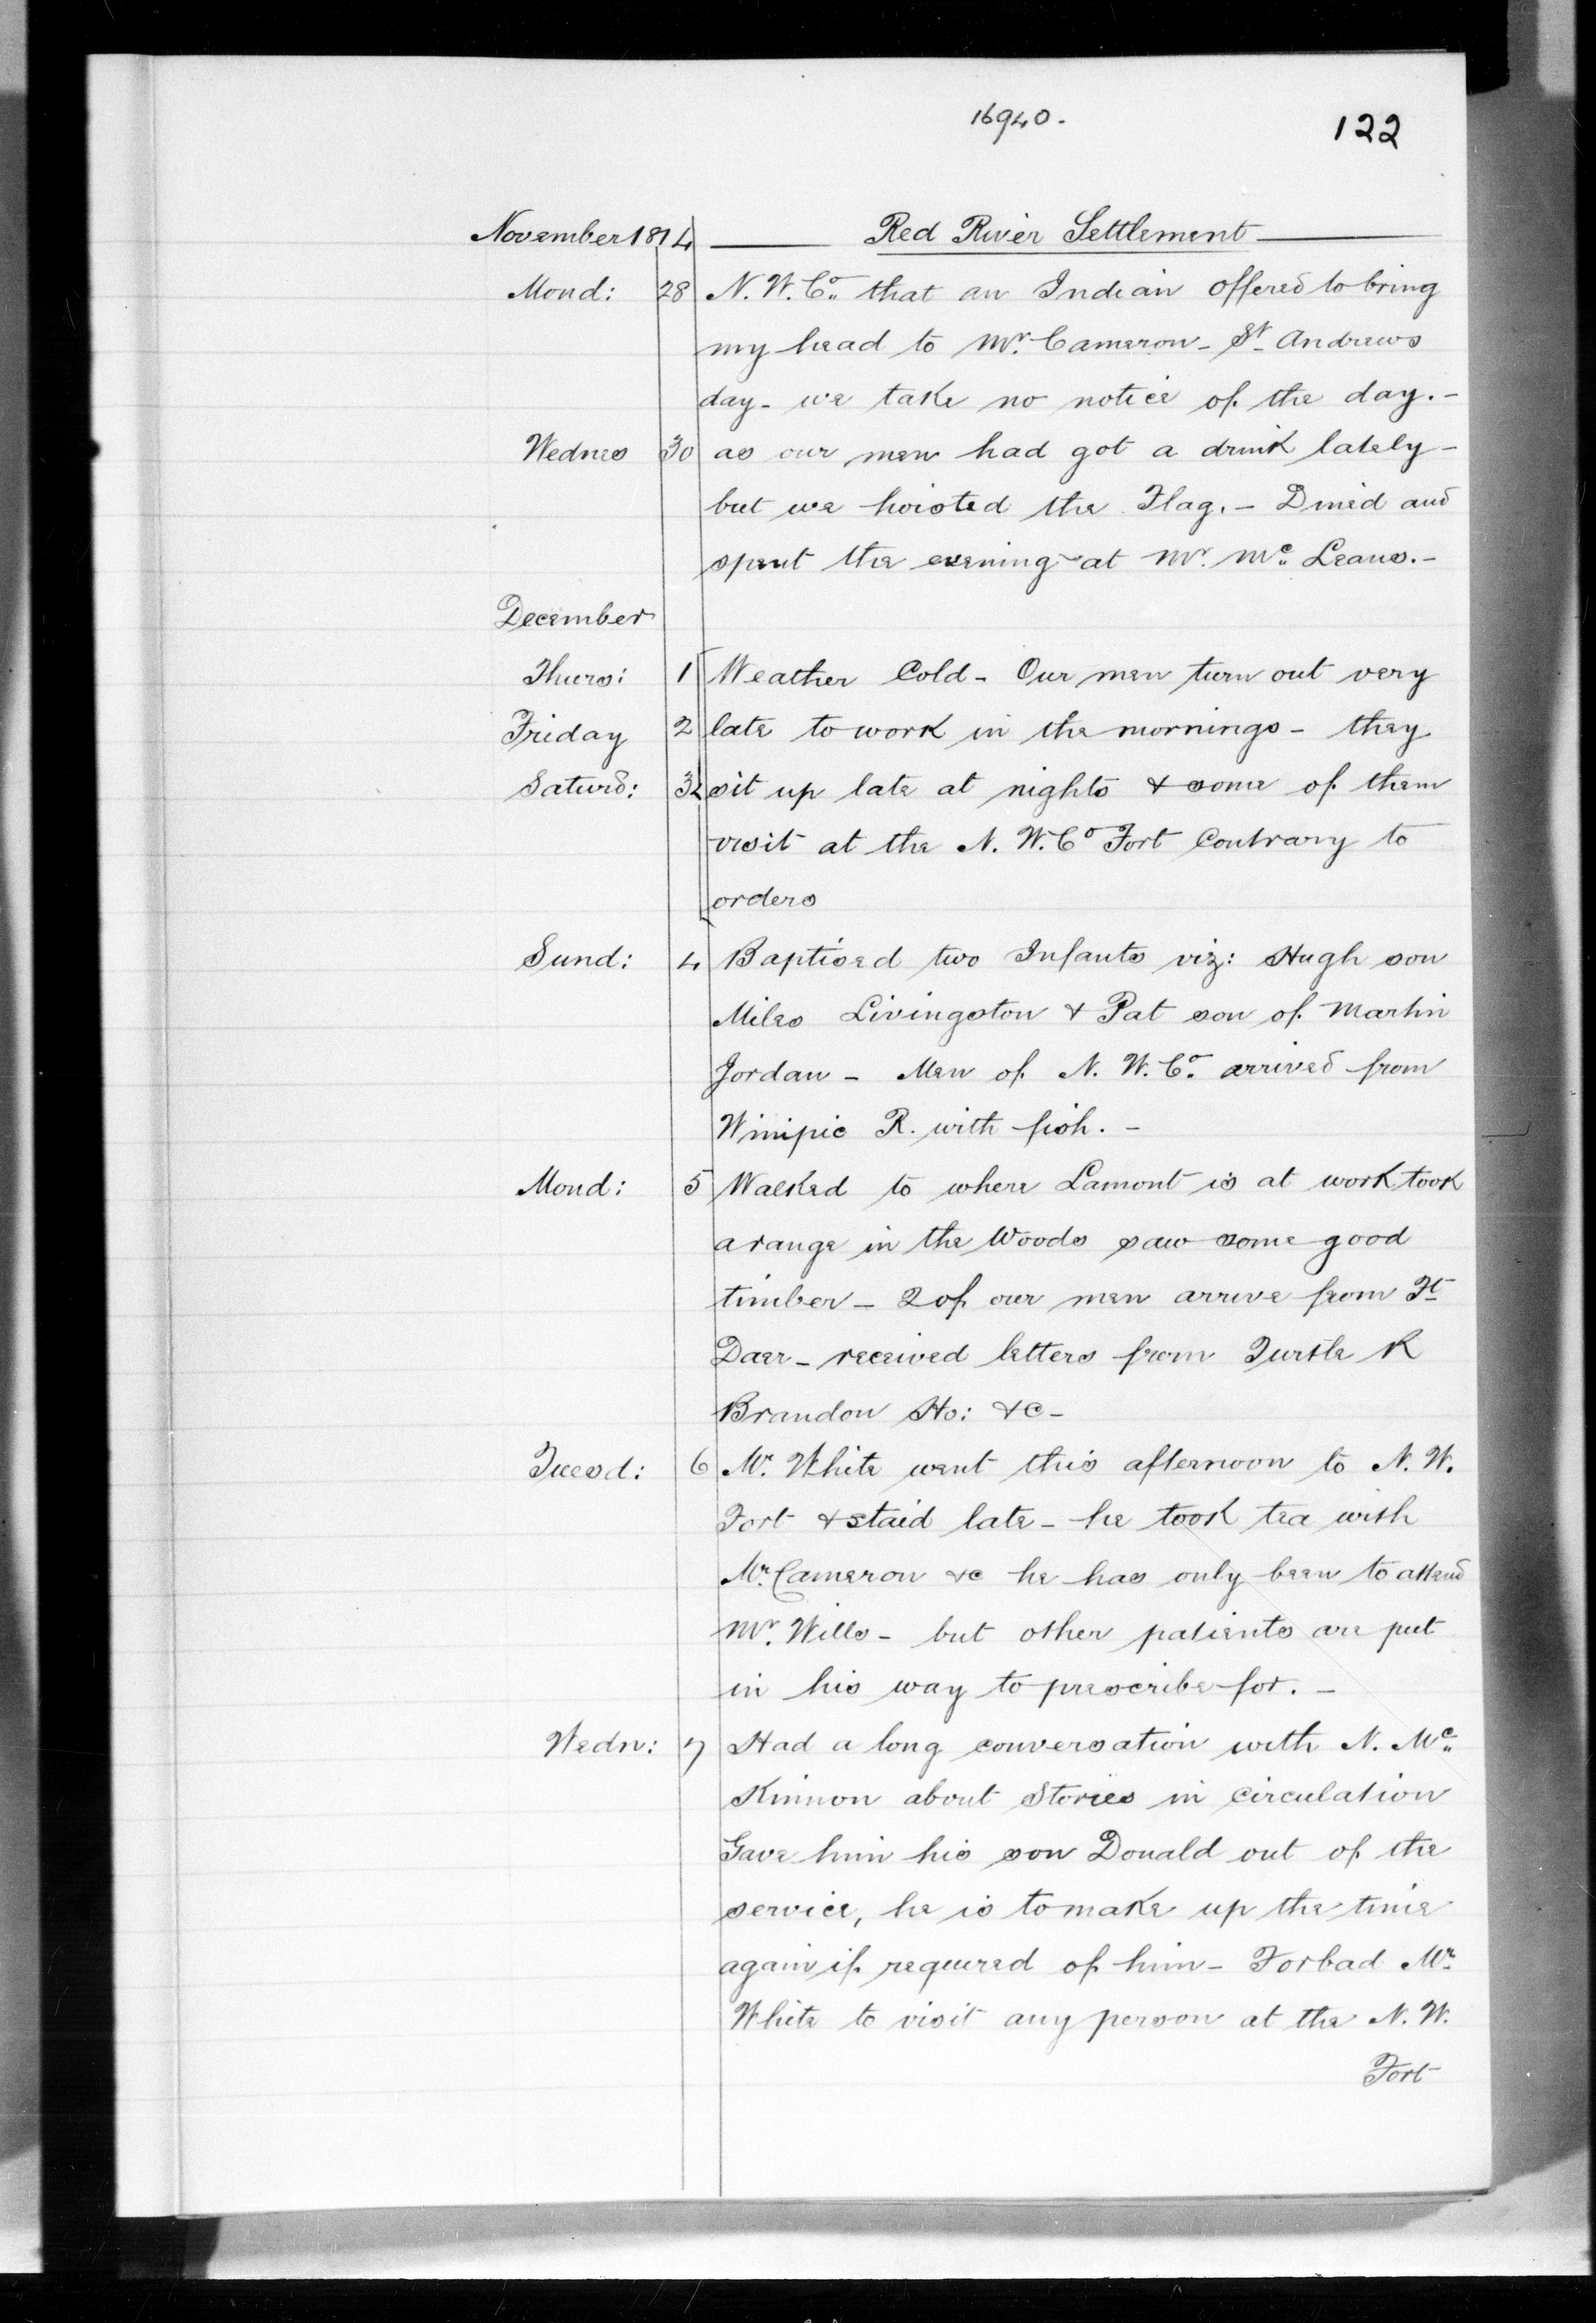 16940.
122
November 1814 Red River Settlement
Mond: 28 N. W. Co. that an Indian offered to bring
my head to Mr. Cameron - St. Andrews
day - we take no notice of the day. -
Wednes 30 as our men had got a drink lately -
but we hoisted the Flag. - Dined and
spent the evening at Mr. Mc. Leans. -
December
Thurs: 1 Weather Cold - Our men turn out very
Friday 2 late to work in the mornings - they
Saturd: 3 sit up late at nights & some of them
visit at the N. W. Co Fort Contrary to
orders
Sund: 4 Baptised two Infants viz: Hugh son
Miles Livingston & Pat son of Martin
Jordan - Men of N. W. Co. arrived from
Winipic R. with fish. -
Mond: 5 Walked to where Lamont is at work took
a range in the Woods saw some good
timber - 2 of our men arrive from Ft
Daer - received letters from Turtle R
Brandon Ho: &c -
Tuesd: 6 Mr. White went this afternoon to N. W.
Fort & staid late - he took tea with
Mr. Cameron &c he has only been to attend
Mr. Wills - but other patients are put
in his way to prescribe for. -
Wedn: 7 Had a long conversation with N. Mc.
Kinnon about Stories in circulation
Gave him his son Donald out of the
service, he is to make up the time
again if required of him - Forbad Mr.
White to visit any person at the N. W.
Fort